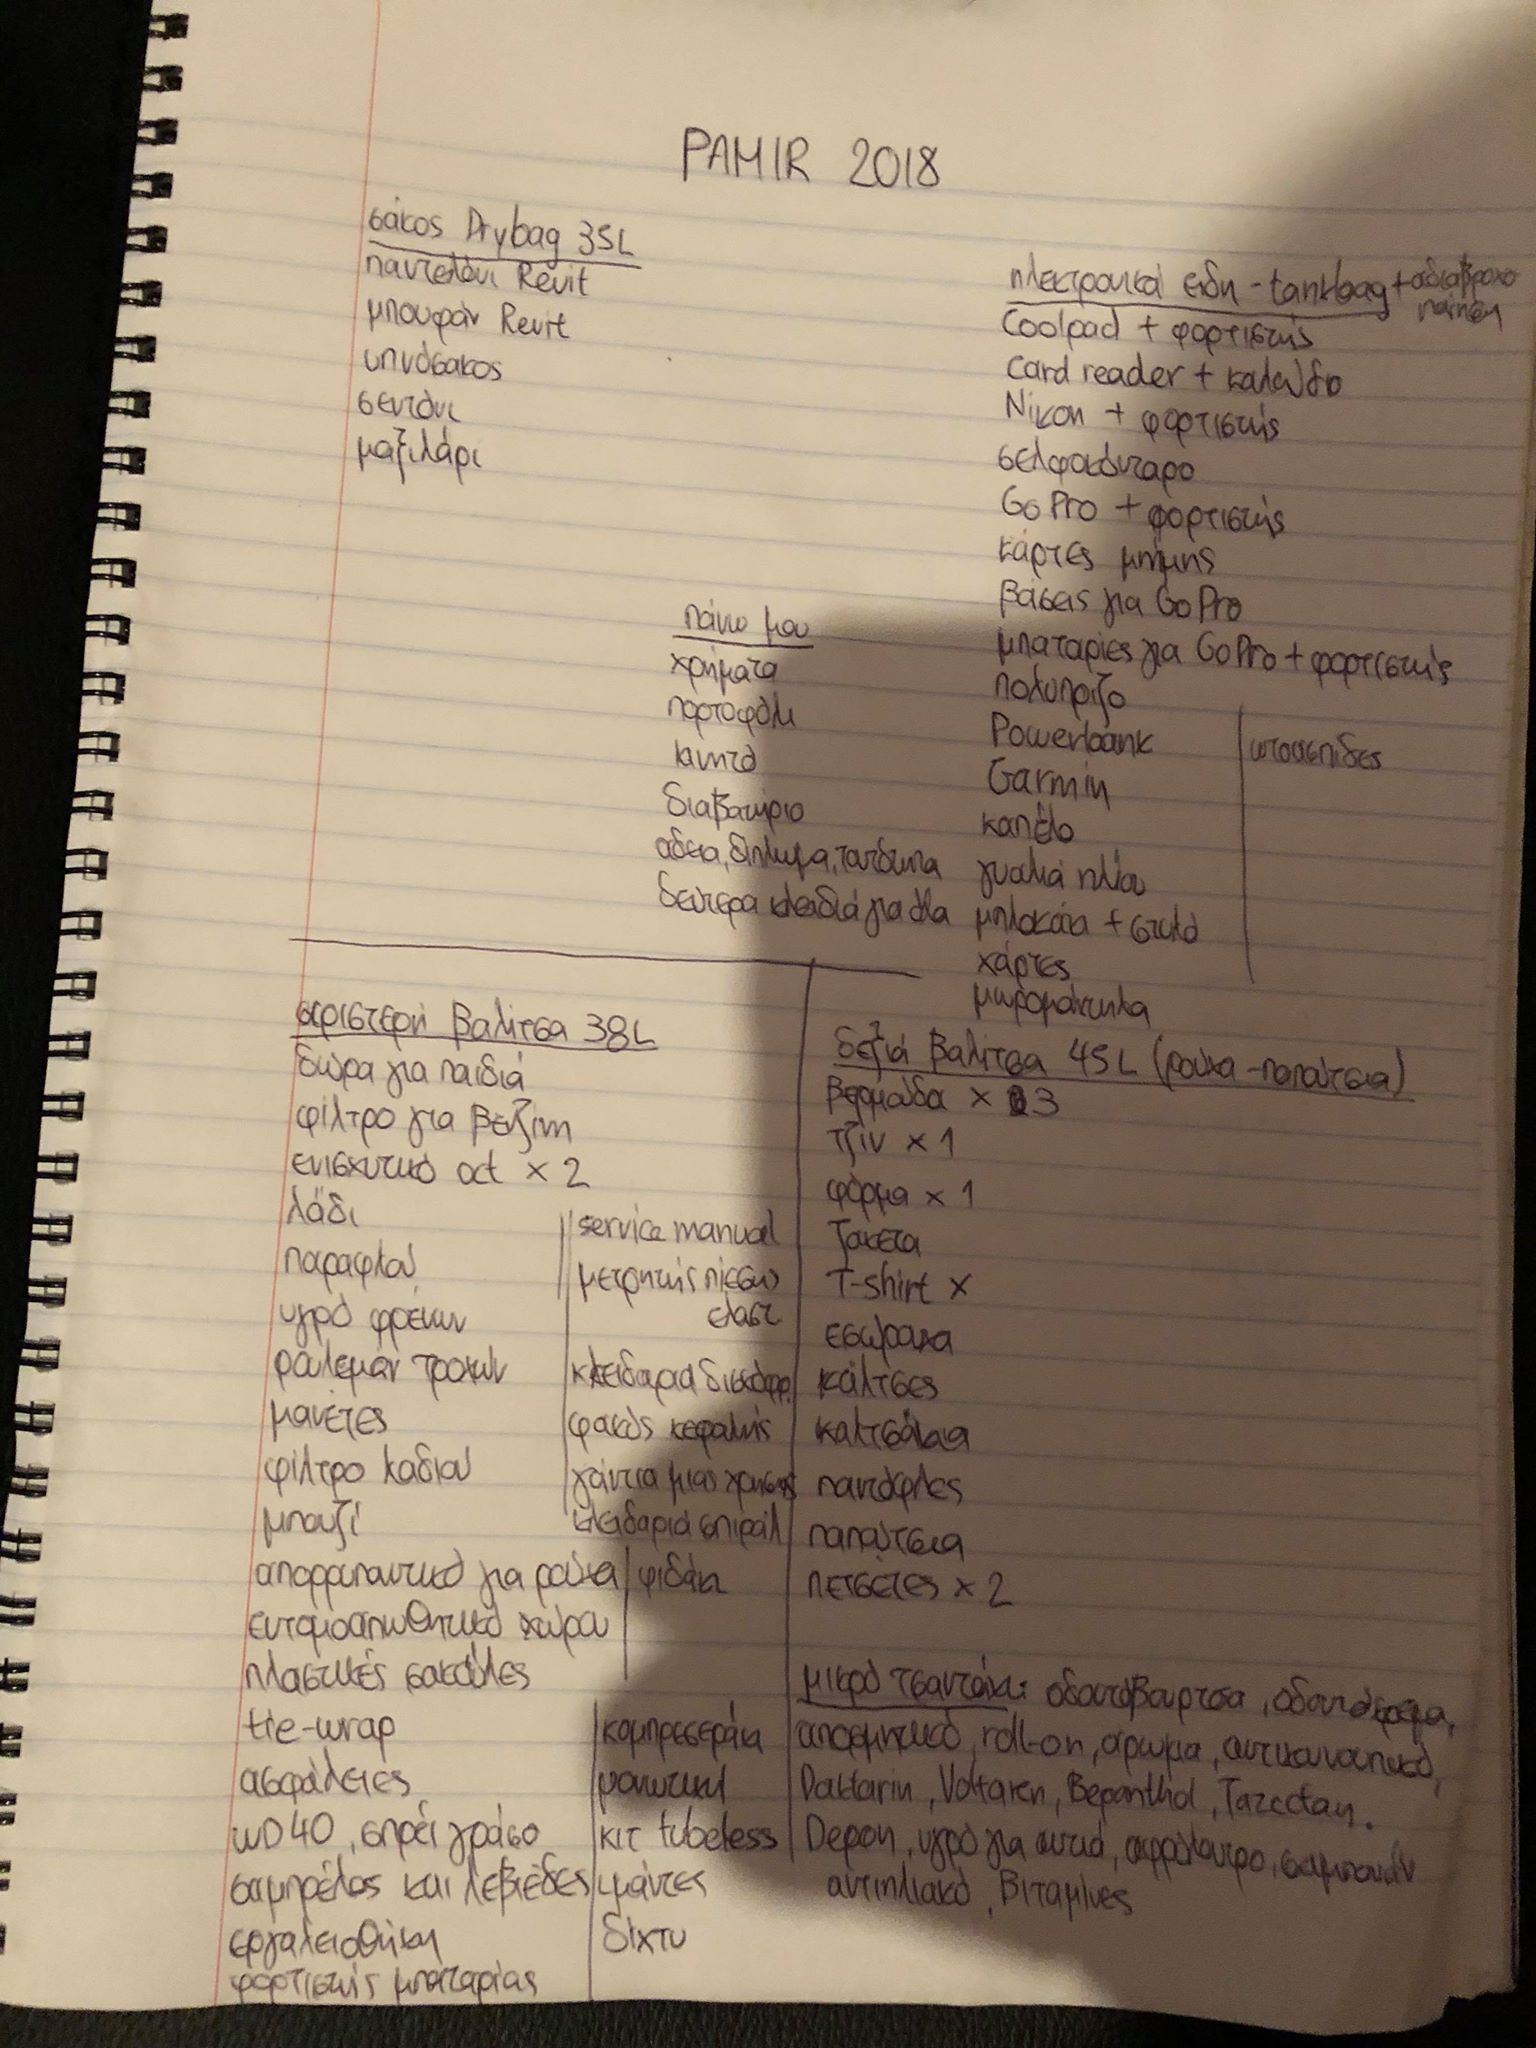 PAMIR 2018
σάκος Drybag 35L
παντελόνι Revit
μπουφάν Revit
υπνόσακος
σεντόνι
μαξιλάρι
ηλεκτρονικά είδη - tankbag + αδιάβροχο
Coolpad + φορτιστής
Card reader + καλώδιο
Nikon + φορτιστής
σελφοκόνταρο
GoPro + φορτιστής
κάρτες μνήμης
βάσεις για GoPro
μπαταρίες για GoPro + φορτιστής
πολύπριζο
Powerbank
Garmin
καπέλο
γυαλιά ηλίου
μπλοκάκι + στυλό
χάρτες
μωρομάντηλα
ωτοασπίδες
πάνω μου
χρήματα
πορτοφόλι
κινητό
διαβατήριο
άδεια, δίπλωμα, ταυτότητα
δεύτερα κλειδιά για όλα
αριστερή βαλίτσα 38L
δώρα για παιδιά
φίλτρο για βενζίνη
ενισχυτικό oct x 2
λάδι
παραφλού
υγρό φρένων
ρουλεμάν τροχών
μανέτες
φίλτρο λαδιού
μπουζί
απορρυπαντικό για ρούχα
εντομοαπωθητικό χώρου
πλαστικές σακούλες
tie-wrap
ασφάλειες
WD40, σπρέι γράσο
σαμπρέλες και λεβιέδες
εργαλειοθήκη
φορτιστής μπαταρίας
service manual
μετρητής πίεσης
ελαστ.
κλειδαριά δισκόφρ.
φακός κεφαλής
γάντια μιας χρήσης
κλειδαριά σπιράλ
φιδάκι
κομπρεσεράκι
μονωτική
κιτ tubeless
ιμάντες
δίχτυ
δεξιά βαλίτσα 45L (ρούχα - παπούτσια)
βερμούδα x 3
τζιν x 1
φόρμα x 1
ζακέτα
T-shirt x
εσώρουχα
κάλτσες
καλτσάκια
παντόφλες
παπούτσια
πετσέτες x 2
μικρό τσαντάκι: οδοντόβουρτσα, οδοντόκρεμα,
αποσμητικό, roll-on, άρωμα, αντικουνουπικό,
Daktarin, Voltaren, Bepanthol, Tazcotan.
Depon, υγρό για αυτιά, αφρόλουτρο, σαμπουάν
αντηλιακό, Βιταμίνες